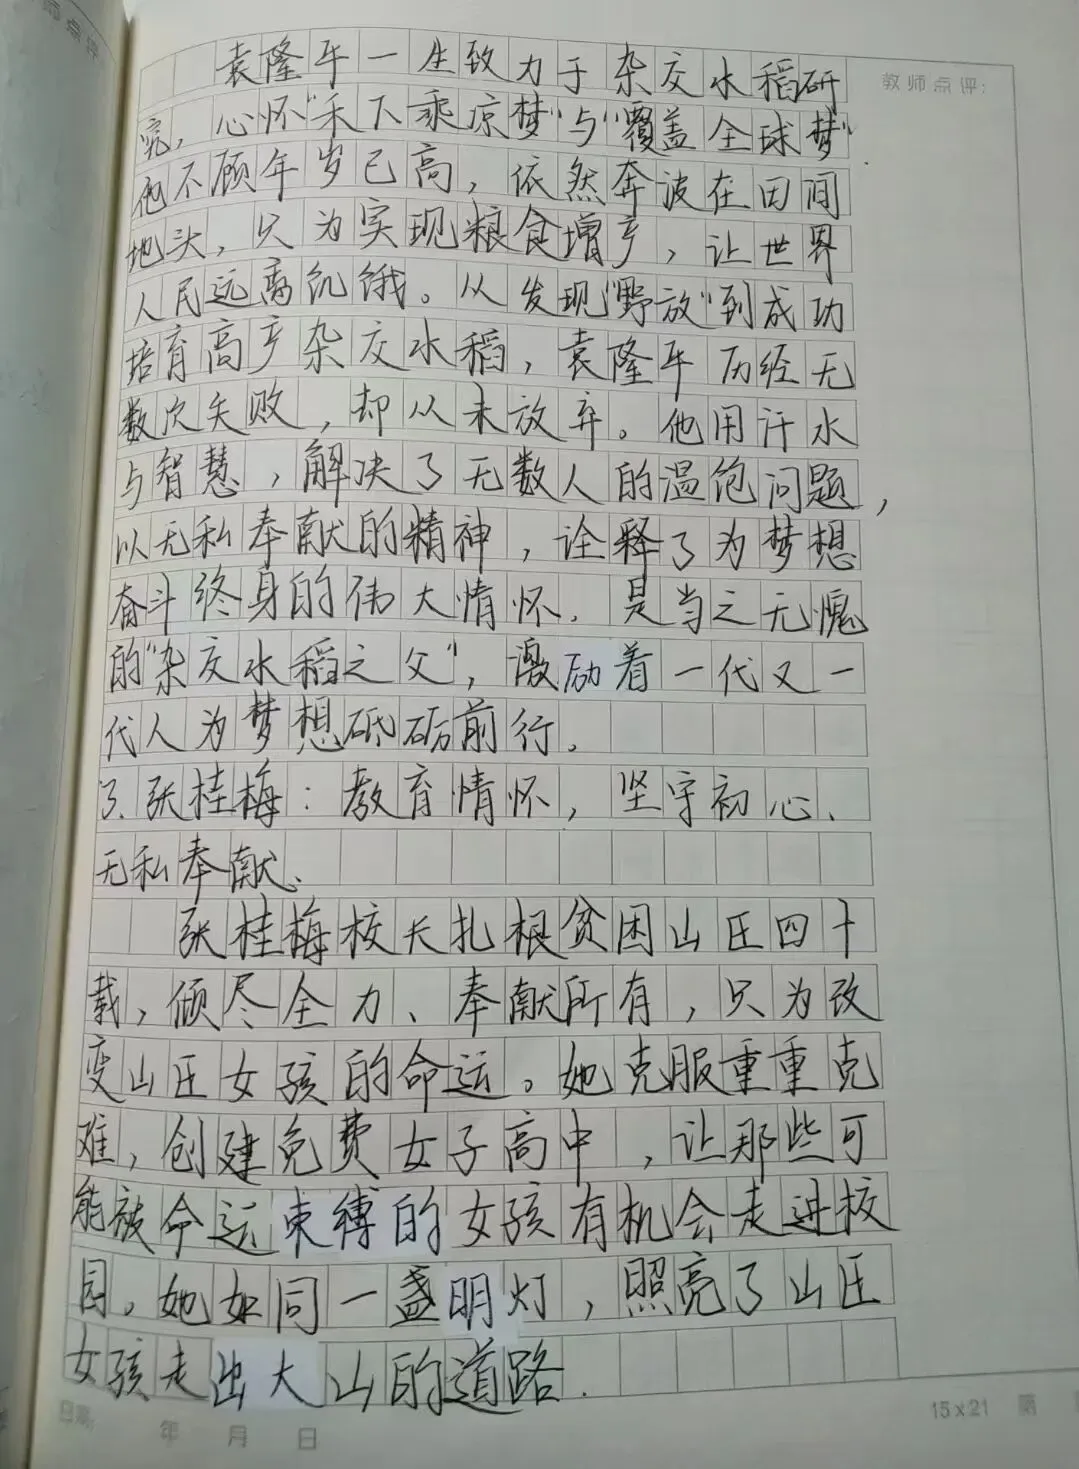 师点评
教师点评：
袁隆平一生致力于杂交水稻研
究，心怀"禾下乘凉梦"与"覆盖全球梦"
他不顾年岁已高，依然奔波在田间
地头，只为实现粮食增产，让世界
人民远离饥饿。从发现"野放"到成功
培育高产杂交水稻，袁隆平历经无
数次失败，却从未放弃。他用汗水
与智慧，解决了无数人的温饱问题，
以无私奉献的精神，诠释了为梦想
奋斗终身的伟大情怀。是当之无愧
的"杂交水稻之父"，激励着一代又一
代人为梦想砥砺前行。
3.张桂梅：教育情怀，坚守初心、
无私奉献、
张桂梅校长扎根贫困山区四十
载，倾尽全力、奉献所有，只为改
变山区女孩的命运。她克服重重克
难，创建免费女子高中，让那些可
能被命运束缚的女孩有机会走进校
园，她如同一盏明灯，照亮了山区
女孩走出大山的道路.
日期： 年 月 日
15×21 第